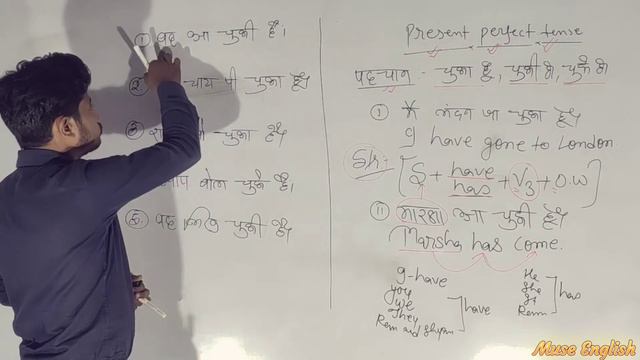 ① वह आ चुकी है।
② चाय पी चुका हूँ।
③ चुका हूँ।
आप बोल चुके है।
⑤ वह लिख चुकी है।
Present perfect tense
पहचान - चुका है, चुकी है, चुके है
① मैं लंदन जा चुका हूँ।
I have gone to London
Str:- [S + have/has + V3 + O.W]
② मारशा आ चुकी है।
Marsha has come.
I - have
You
We
They
Ram and Shyam
have
He
She
It
Ram
has
Muse English